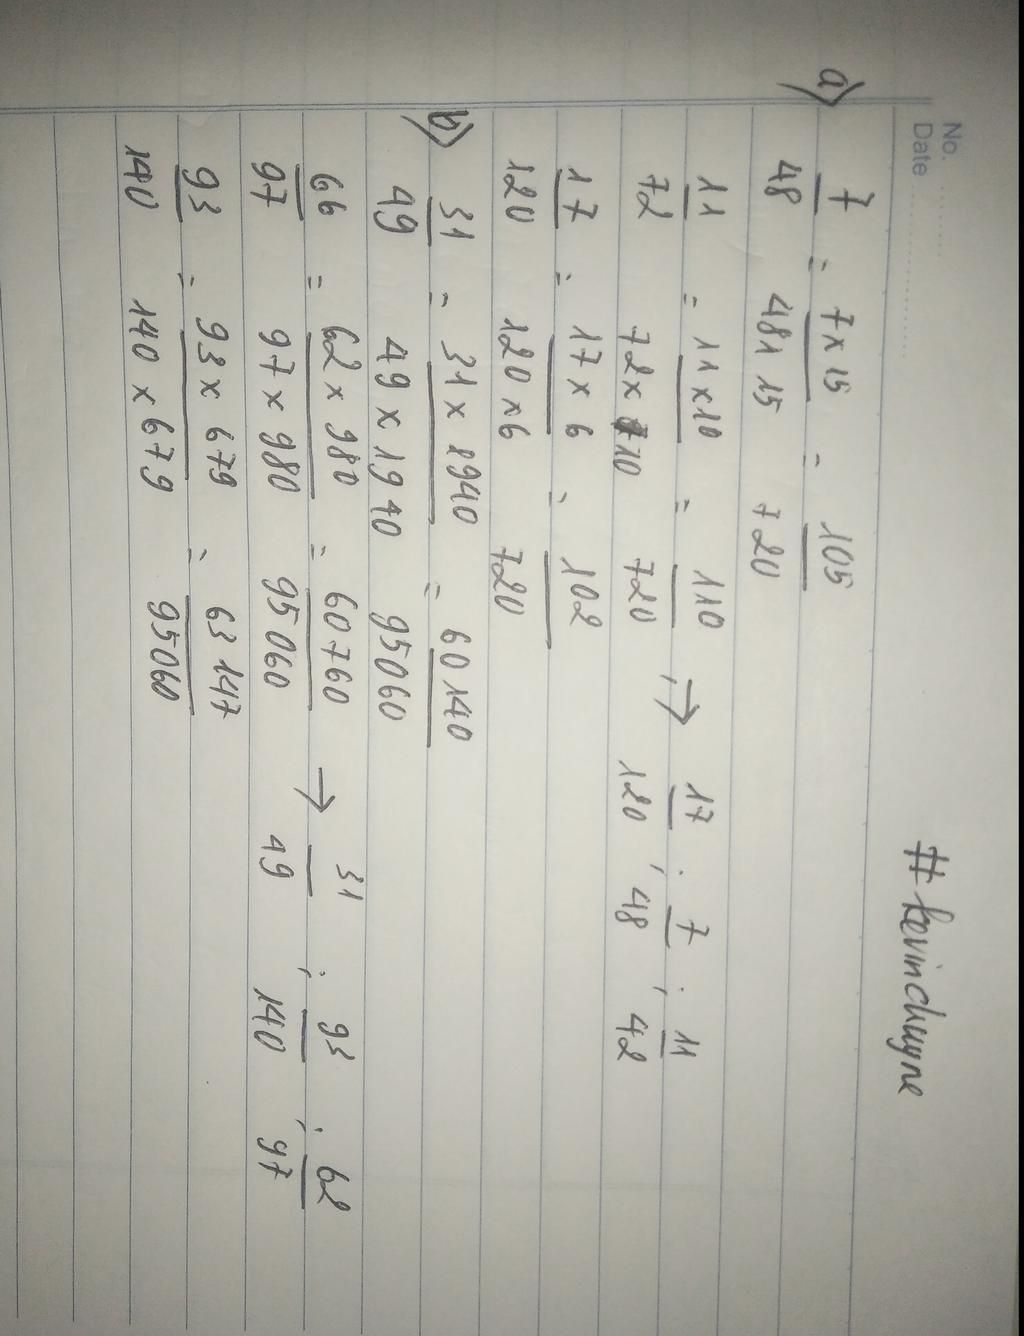 No.
Date
#kevinchuyne
a) 7/48 = 7x15/48x15 = 105/720
11/72 = 11x10/72x10 = 110/720 → 17/120 ; 7/48 ; 11/42
17/120 = 17x6/120x6 = 102/720
b) 31/49 = 31x1940/49x1940 = 60140/95060
66/97 = 62x980/97x980 = 60760/95060 → 31/49 ; 93/140 ; 62/97
93/140 = 93x679/140x679 = 63147/95060